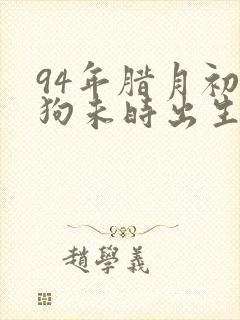 94年腊月初
狗未时出生
趙學義